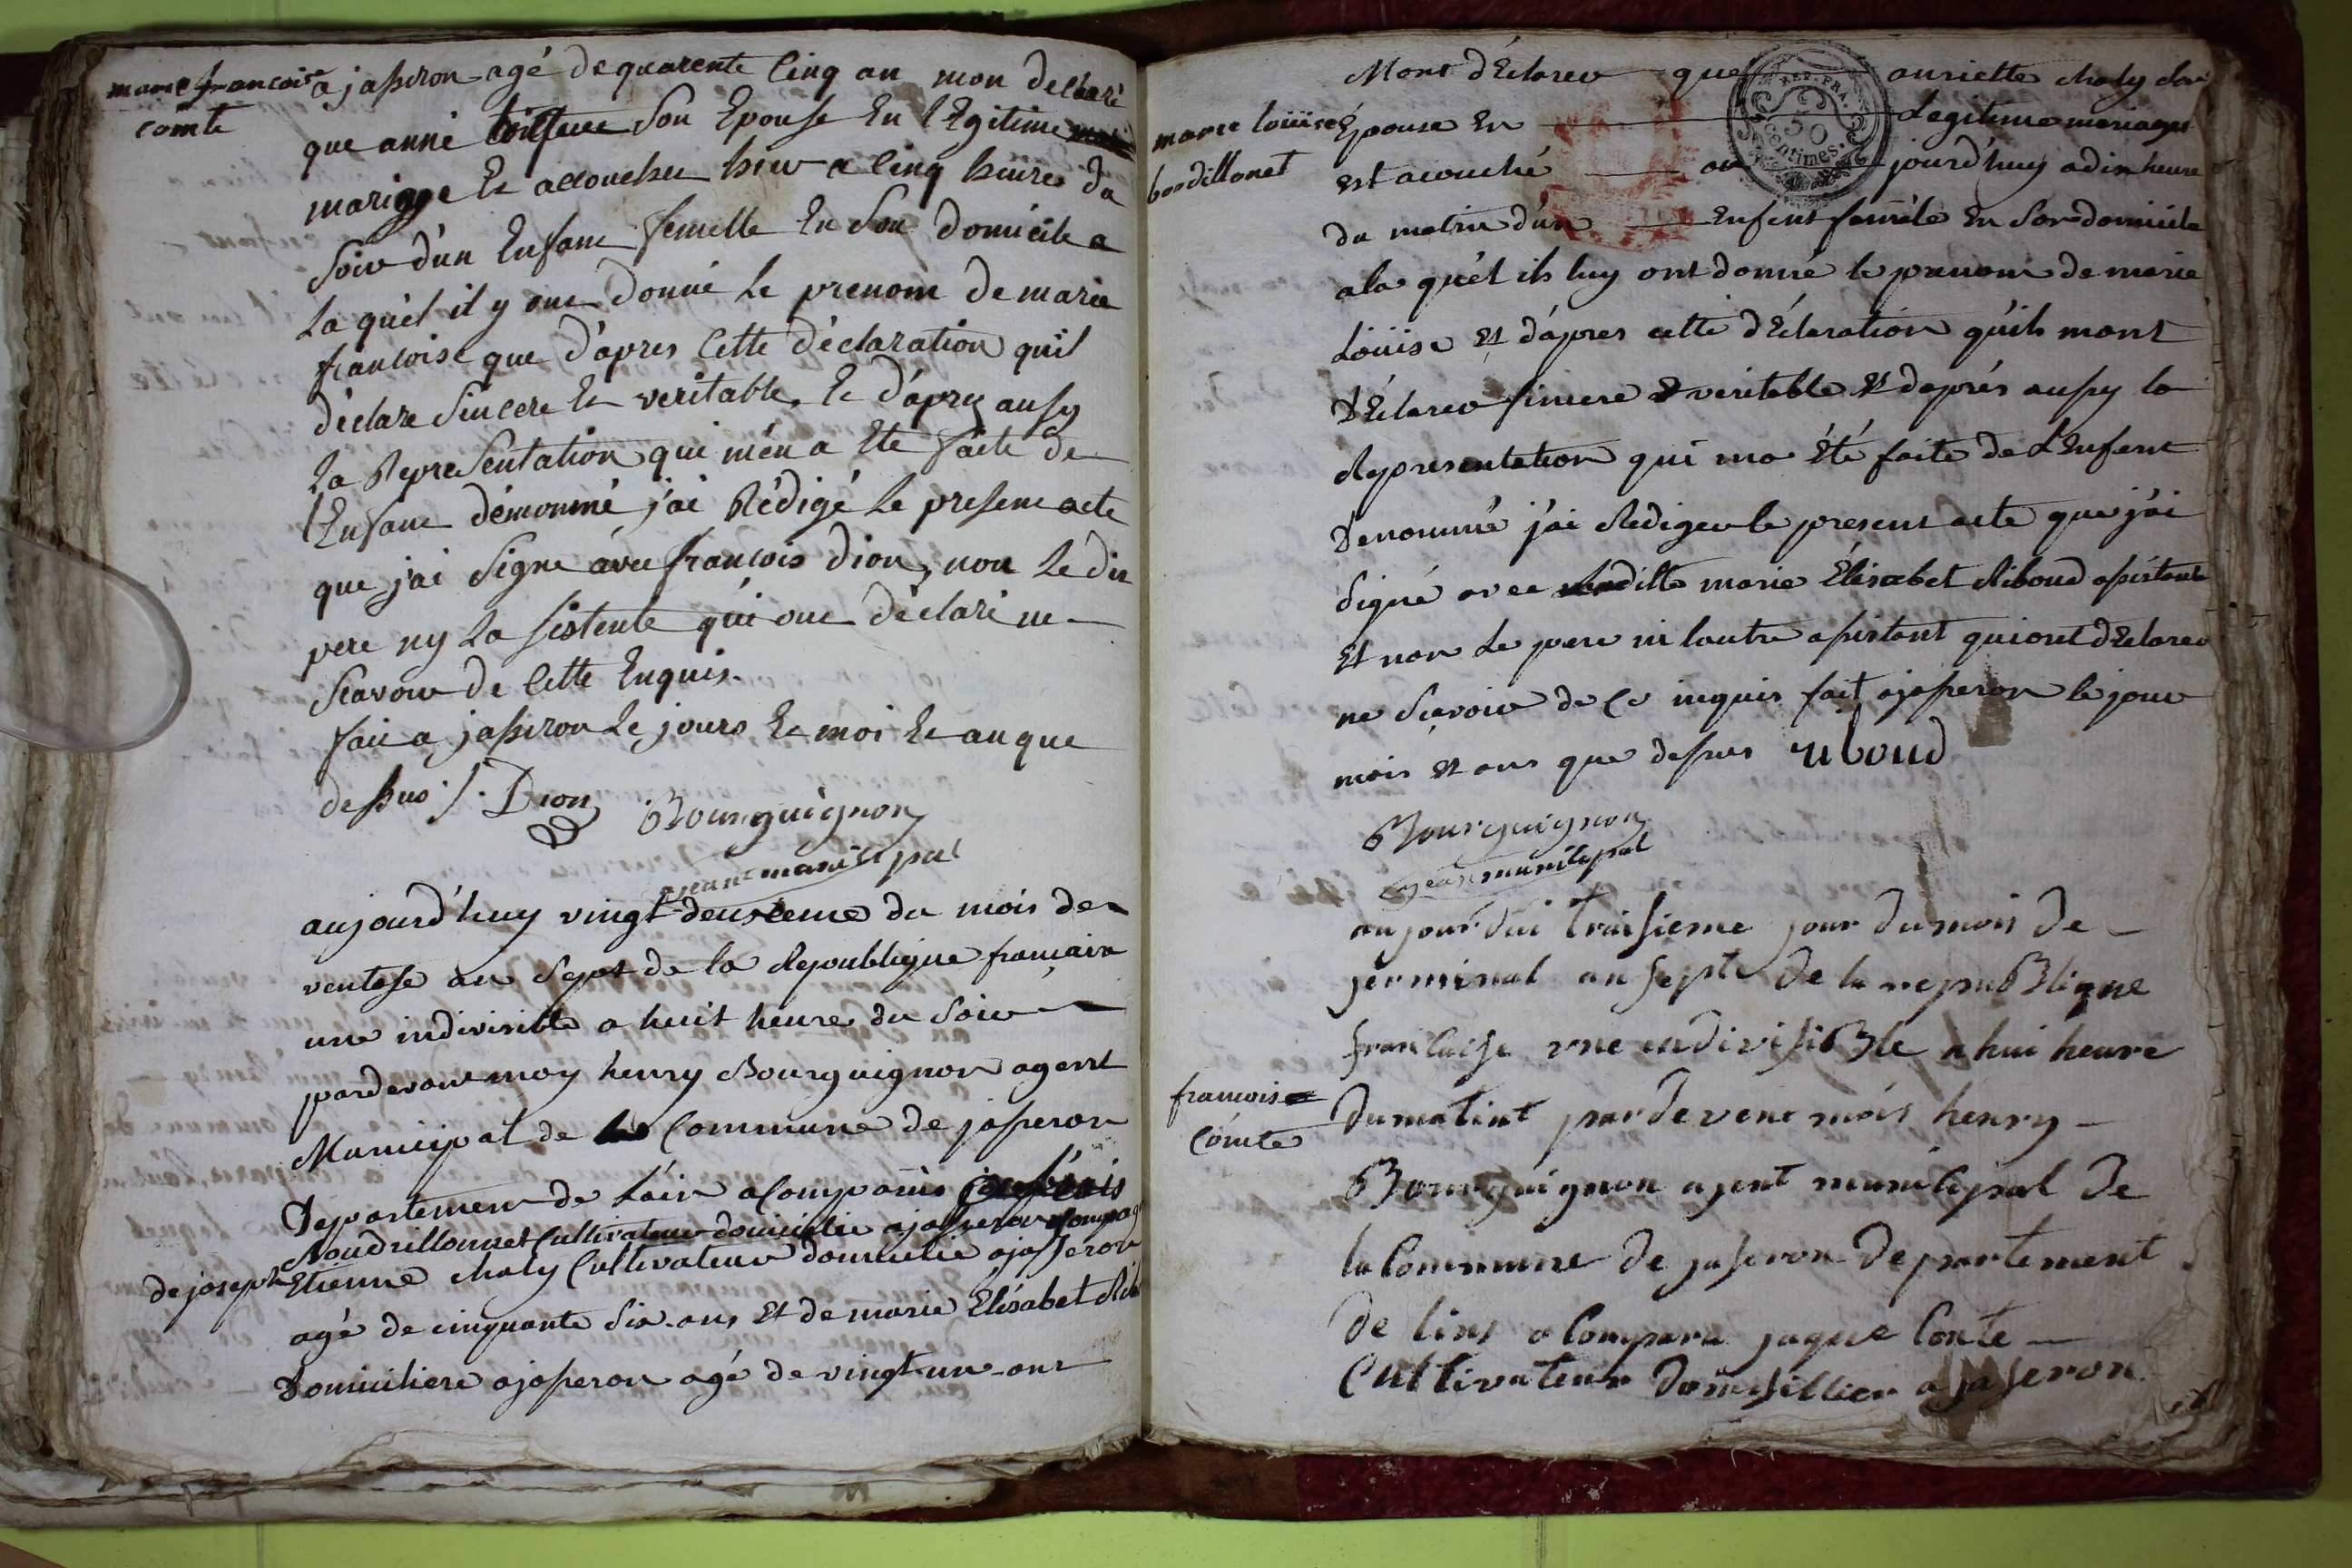 marie francoise
comte
a jasseron agé de quarente cinq an mon déclaré
que anne Son Epouse En lEgitime
mariage Et accouchee hier a cinq heures du
Soir d'un Enfant femelle En Son domicile a
La quél il y ont donné le prenom de marie
francoise que d'apres cette déclaration quil
déclare Sincere Et veritable, Et d'apres aussy
La Representation qui m'en a Eté faite de
lEnfant dénommé j'ai Rédigé Le present acte
que j'ai Signe avec francois dion, non Le dit
pere ny La sistente qui ont déclaré ne
Scavoir de Cette Enquis.
fait a jasseron Le jours Et moi Et an que
dessus f. Dion Bourguignon
agent municipal
aujourd'huy vingt deuxieme du mois de
ventose an Sept de la Republique francaise
une indivisible a huit heure du Soir
pardevant moy henry Bourguignon agent
Municipal de la Commune de jasseron
Departement de L'ain a Comparûs
Boudrillonnet Cultivateur domicilie a jasseron
de joseph Etienne chaly Cultivateur domicilie a jasseron
agé de cinquante Six ans Et de marie Elisabet
Domiciliere a jasseron agé de vingt-un-ans
marie loüise
bordillonet
Mont d'Eclarer que anriette chaly
Épouse En Legitime mariages
est acouché au jourd'huy a dix heure
du matin d'un Enfent femèle En Son domicile
a la quél ils luy ont donné le prenom de marie
Loüise Et d'apres cette d'Eclaration quils mont
d'Eclarer sincere Et veritable Et daprés aussy la
Representation qui ma Été faite de L'Enfent
Denommé j'ai Rediger le present acte que j'ai
Signé avec laditte marie Élisabet Riboud asistante
Et non Le pere ni lautre asistant qui ont d'Eclarer
ne Scavoir de Ce inquis fait a jasseron le jour
mois Et ans que dessus riboud
Bourguignon
agent municipal
francoise
Comte
aujourdui troisieme jour du mois de
jerminal an septe de la republique
francaise vne indivisible a hui heure
du matint pardevent mois henry
Bourguignon agent municipal de
la Commune de jaseron departement
de lins a Compara jaque Conte
Cultivateur domisillier a jaseron